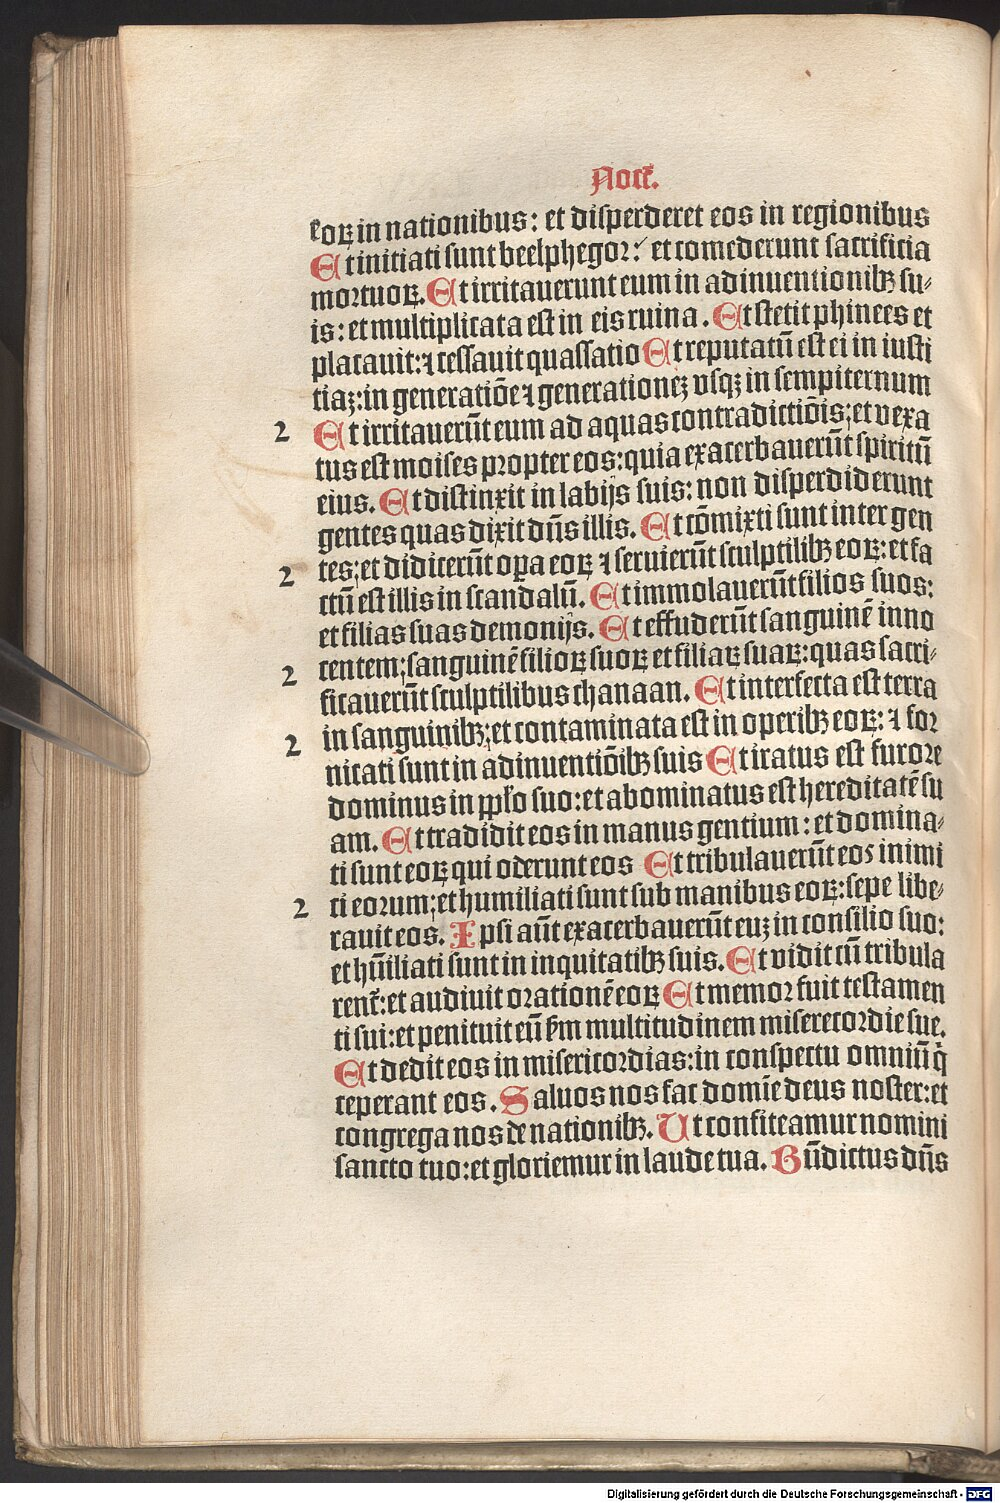 Noct̄.
eoꝝ in nationibus: et disperderet eos in regionibus
Et initiati sunt beelphegor: et comederunt sacrificia
mortuoꝝ. Et irritauerunt eum in adinuentionibꝫ su⸗
is: et multiplicata est in eis ruina. Et stetit phinees et
placauit: ⁊ cessauit quassatio Et reputatū est ei in iusti
tiaꝫ: in generatiōe ⁊ generationeꝫ vsqꝫ in sempiternum
2 Et irritauerūt eum ad aquas contradictiōis: et vexa
tus est moises propter eos: quia exacerbauerūt spiritū
eius. Et distinxit in labijs suis: non disperdiderunt
gentes quas dixit dn̄s illis. Et cōmixti sunt inter gen
2 tes: et didicerūt oꝑa eoꝝ ⁊ seruierūt sculptilibꝫ eoꝝ: et fa
ctū est illis in scandalū. Et immolauerūt filios suos:
et filias suas demonijs. Et effuderūt sanguinē inno
2 centem: sanguinē filioꝝ suoꝝ et filiaꝝ suaꝝ: quas sacri⸗
ficauerūt sculptilibus chanaan. Et interfecta est terra
2 in sanguinibꝫ: et contaminata est in operibꝫ eoꝝ: ⁊ for
nicati sunt in adinuentiōibꝫ suis Et iratus est furore
dominus in pp̄lo suo: et abominatus est hereditatē su
am. Et tradidit eos in manus gentium: et domina⸗
ti sunt eoꝝ qui oderunt eos Et tribulauerūt eos inimi
2 ci eorum: et humiliati sunt sub manibus eoꝝ: sepe libe⸗
rauit eos. Ipsi aūt exacerbauerūt euꝫ in consilio suo:
et hūiliati sunt in inquitatibꝫ suis. Et vidit cū tribula
rent̄: et audiuit orationē eoꝝ Et memor fuit testamen
ti sui: et penituit eū ẜm multitudinem miserecordie sue.
Et dedit eos in misericordias: in conspectu omniū q̇
ceperant eos. Saluos nos fac domīe deus noster: et
congrega nos de nationibꝫ. Ut confiteamur nomini
sancto tuo: et gloriemur in laude tua. Bn̄dictus dn̄s
Digitalisierung gefördert durch die Deutsche Forschungsgemeinschaft - DFG